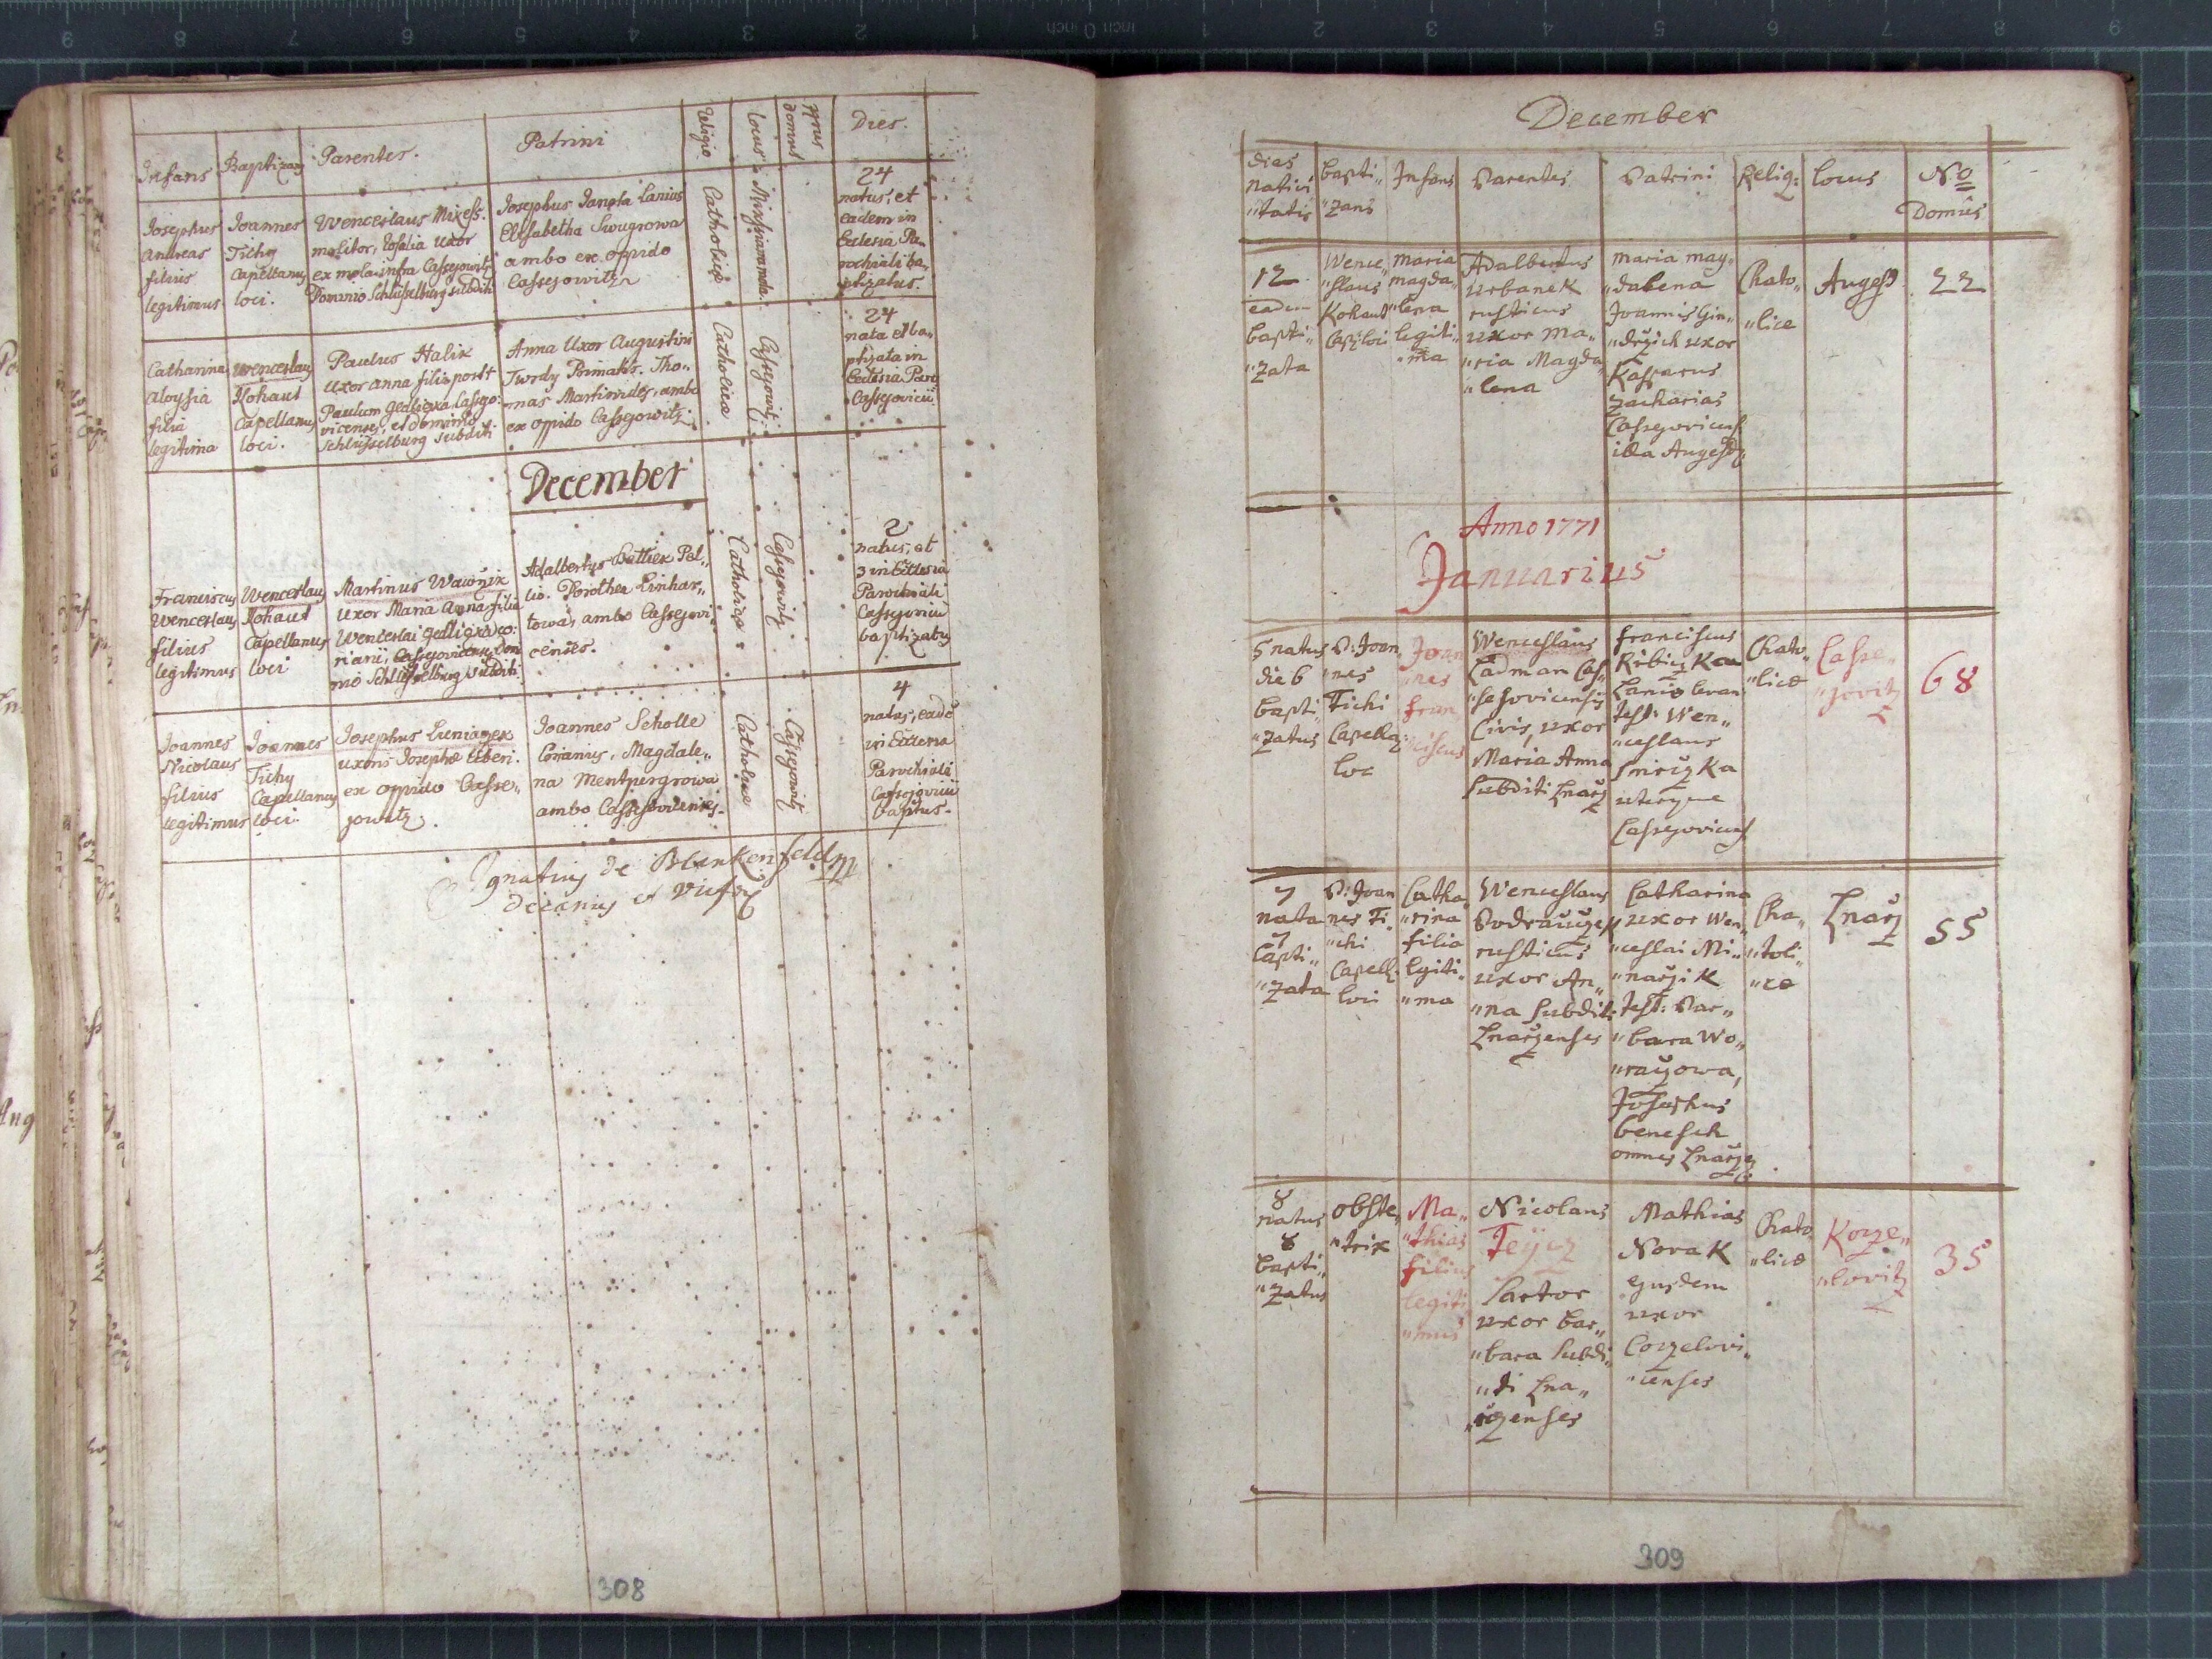 Infans Baptizans Parentes. Patrini Religio Locus Nrus domus Dies.
Josephus
Andreas
filius
legitimus
Joannes
Tichy
Capellanus
loci.
Wenceslaus
molitor, Rosalia uxor
ex mola infra Cassejowitz
Dominio Schlüsselburg subditi
Josephus Janota Lanius
Elisabetha Swugrowa
ambo ex oppido
Cassejowitz
Catholicæ
24
natus, et
eadem in
Ecclesia Pa-
rochiali ba-
ptizatus.
Catharina
Aloysia
filia
legitima
Wenceslaus
Kohaut
Capellanus
loci.
Paulus Halik
uxor Anna filia post †
Paulum Gedlicxa Cassejo:
vicenses, et Dominio
Schlüsselburg subditi
Anna Uxor Augustini
Twrdy Primatis. Tho„
mas Martinides, ambo
ex oppido Cassejowitz.
Catholicæ
Cassejowitz
24
nata et ba„
ptizata in
Ecclesia Paro
Cassejovicii
December
Franciscus
Wenceslaus
filius
legitimus
Wenceslaus
Kohaut
Capellanus
loci
Martinus Wawržik
uxor Maria Anna filia
Wenceslai Gedlicxa co:
riarii, Cassejovicenses, Domi
nio Schlüsselburg subditi
Adalbertus Pel„
lio. Dorothea Linhar„
towa, ambo Cassejovi
censes.
Catholicæ
Cassejowitz
2
natus, et
3 in Ecclesia
Parochiali
Cassejovicii
baptizatus
Joannes
Nicolaus
filius
legitimus
Joannes
Tichy
Capellanus
loci.
Josephus
uxoris Josephæ liberi.
ex oppido Casse„
jowitz.
Joannes Scholle
Coriarius, Magdale„
na Mentpergrowa
ambo Cassejovicenses.
Catholicæ
Cassejowitz
4
natus, eadē
in Ecclesia
Parochiali
Cassejovicii
baptus.
Ignatius de Blankenfeld
decanus et
308
December
dies
nativi
„tatis
bapti„
„zans
Infans
Parentes
Patrini
Relig:
locus
No
Domûs
12
eadem
bapti„
„zata
Wence„
„slaus
Kohaut
Cap: loci
maria
magda„
„lena
legiti„
„ma
Adalbertus
urbanek
rusticus
uxor Ma„
„ria Magda„
„lena
maria mag„
„dalena
Joannis Gin„
„držich uxor
Kasparus
Zacharias
Cassejovicens
illa Augezd
Chato„
„licæ
Augezd
22
Anno 1771
Januarius
5 natus
die 6
bapti„
„zatus
P: Joan„
„nes
Tichi
Capella:
loc
Joan
„nes
fran
„ciscus
Wenceslaus
Ladman Cas„
„sejovicensis
Civis, uxor
Maria Anna
Subditi Lnarz
franciscus
Ribiczka
Lanio levan
test: Wen„
„ceslaus
Smiczka
uterque
Cassejovicens
Chato„
„licæ
Casse„
„jovitz
68
7
nata
7
bapti„
„zata
P: Joan
nes Ti„
„chi
Capell:
loci
Catha„
„rina
filia
legiti„
„ma
Wenceslaus
rusticus
uxor An„
„na Subdit:
Lnarzenses
Catharina
uxor Wen„
„ceslai Mi„
„narzik
test: Bar„
„bara Wo„
Josephus
benesch
omnes Lnarzen
Cha„
„toli„
„cæ
Lnarz
55
8
natus
8
bapti„
„zatus
obste„
„trix
Ma„
„thias
filius
legiti
„mus
Nicolaus
Tejcz
Sartor
uxor bar„
„bara Subdi„
„ti Lna„
„rzenses
Mathias
Novak
ejusdem
uxor
Cozelovi„
„censes
Chato
„licæ
Koze„
„lovitz
35
309